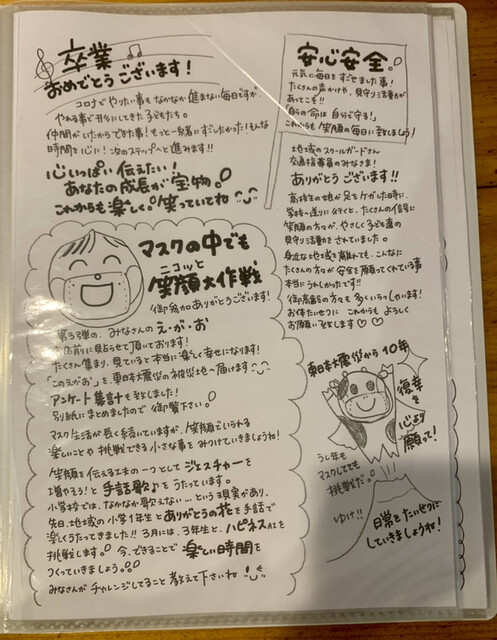 卒業
おめでとうございます!
コロナでやりたい事もなかなか進まない毎日ですが、
やれる事で形にしてきた子どもたち。
仲間がいたからできた事!もっと一緒にすごしたかった!そんな
時間を心に!次のステップへと進みます!!
心いっぱい伝えたい!
あなたの成長が宝物。
これからも楽しく。笑っていてね
安心安全。
元気に毎日をすごせました事!
たくさんの声かけや、見守り活動力が
あってこそ!!
「自分の命は自分で守る!」
これからも笑顔の毎日に致しましょう!
地域のスクールガードさん
交通指導員のみなさま!
ありがとうございます!!
高校生の娘が足をケガした時に、
学校へ送りに行くと、たくさんの信号に
笑顔の方々が、やさしく子ども達の
見守り活動力をされていました。
身近な地域を離れても、こんなに
たくさんの方々が安全を願ってくれている事
本当にうれしかったです!!
御高齢の方々も多くいらっしゃいます!
お体たいせつに これからもよろしく
お願い致します♡♡
マスクの中でも
ニコッと
笑顔大作戦
御参加ありがとうございます!
第3弾の、みなさんのえ・が・お
お店前に貼らせて頂いております!
たくさん集まり、見ていると本当に楽しく幸せになります!
「このえがお」を、東日本大震災の被災地へ届けます
アンケート集計も致しました!
別紙にまとめましたので御覧下さい。
マスク生活が長く続いていますが、笑顔でいられる
楽しいことや挑戦できる小さな事をみつけていきましょうね!
笑顔を伝える工夫の一つとしてジェスチャーを
増やそう!と手話歌♪をうたっています。
小学校では、なかなか歌えない…という現実があり、
先日、地域の小学1年生とありがとうの花を手話で
楽しくうたってきました!!3月には、3年生と、ハピネスAIを
挑戦します。今、できることで楽しい時間を
つくっていきましょう。
みなさんがチャレンジしてること教えて下さいね
東日本大震災から10年
復幸を
心より
願って!
うし年も
マスクしてても
挑戦だ。
ゆけ!!
日常をたいせつに
していきましょうね!